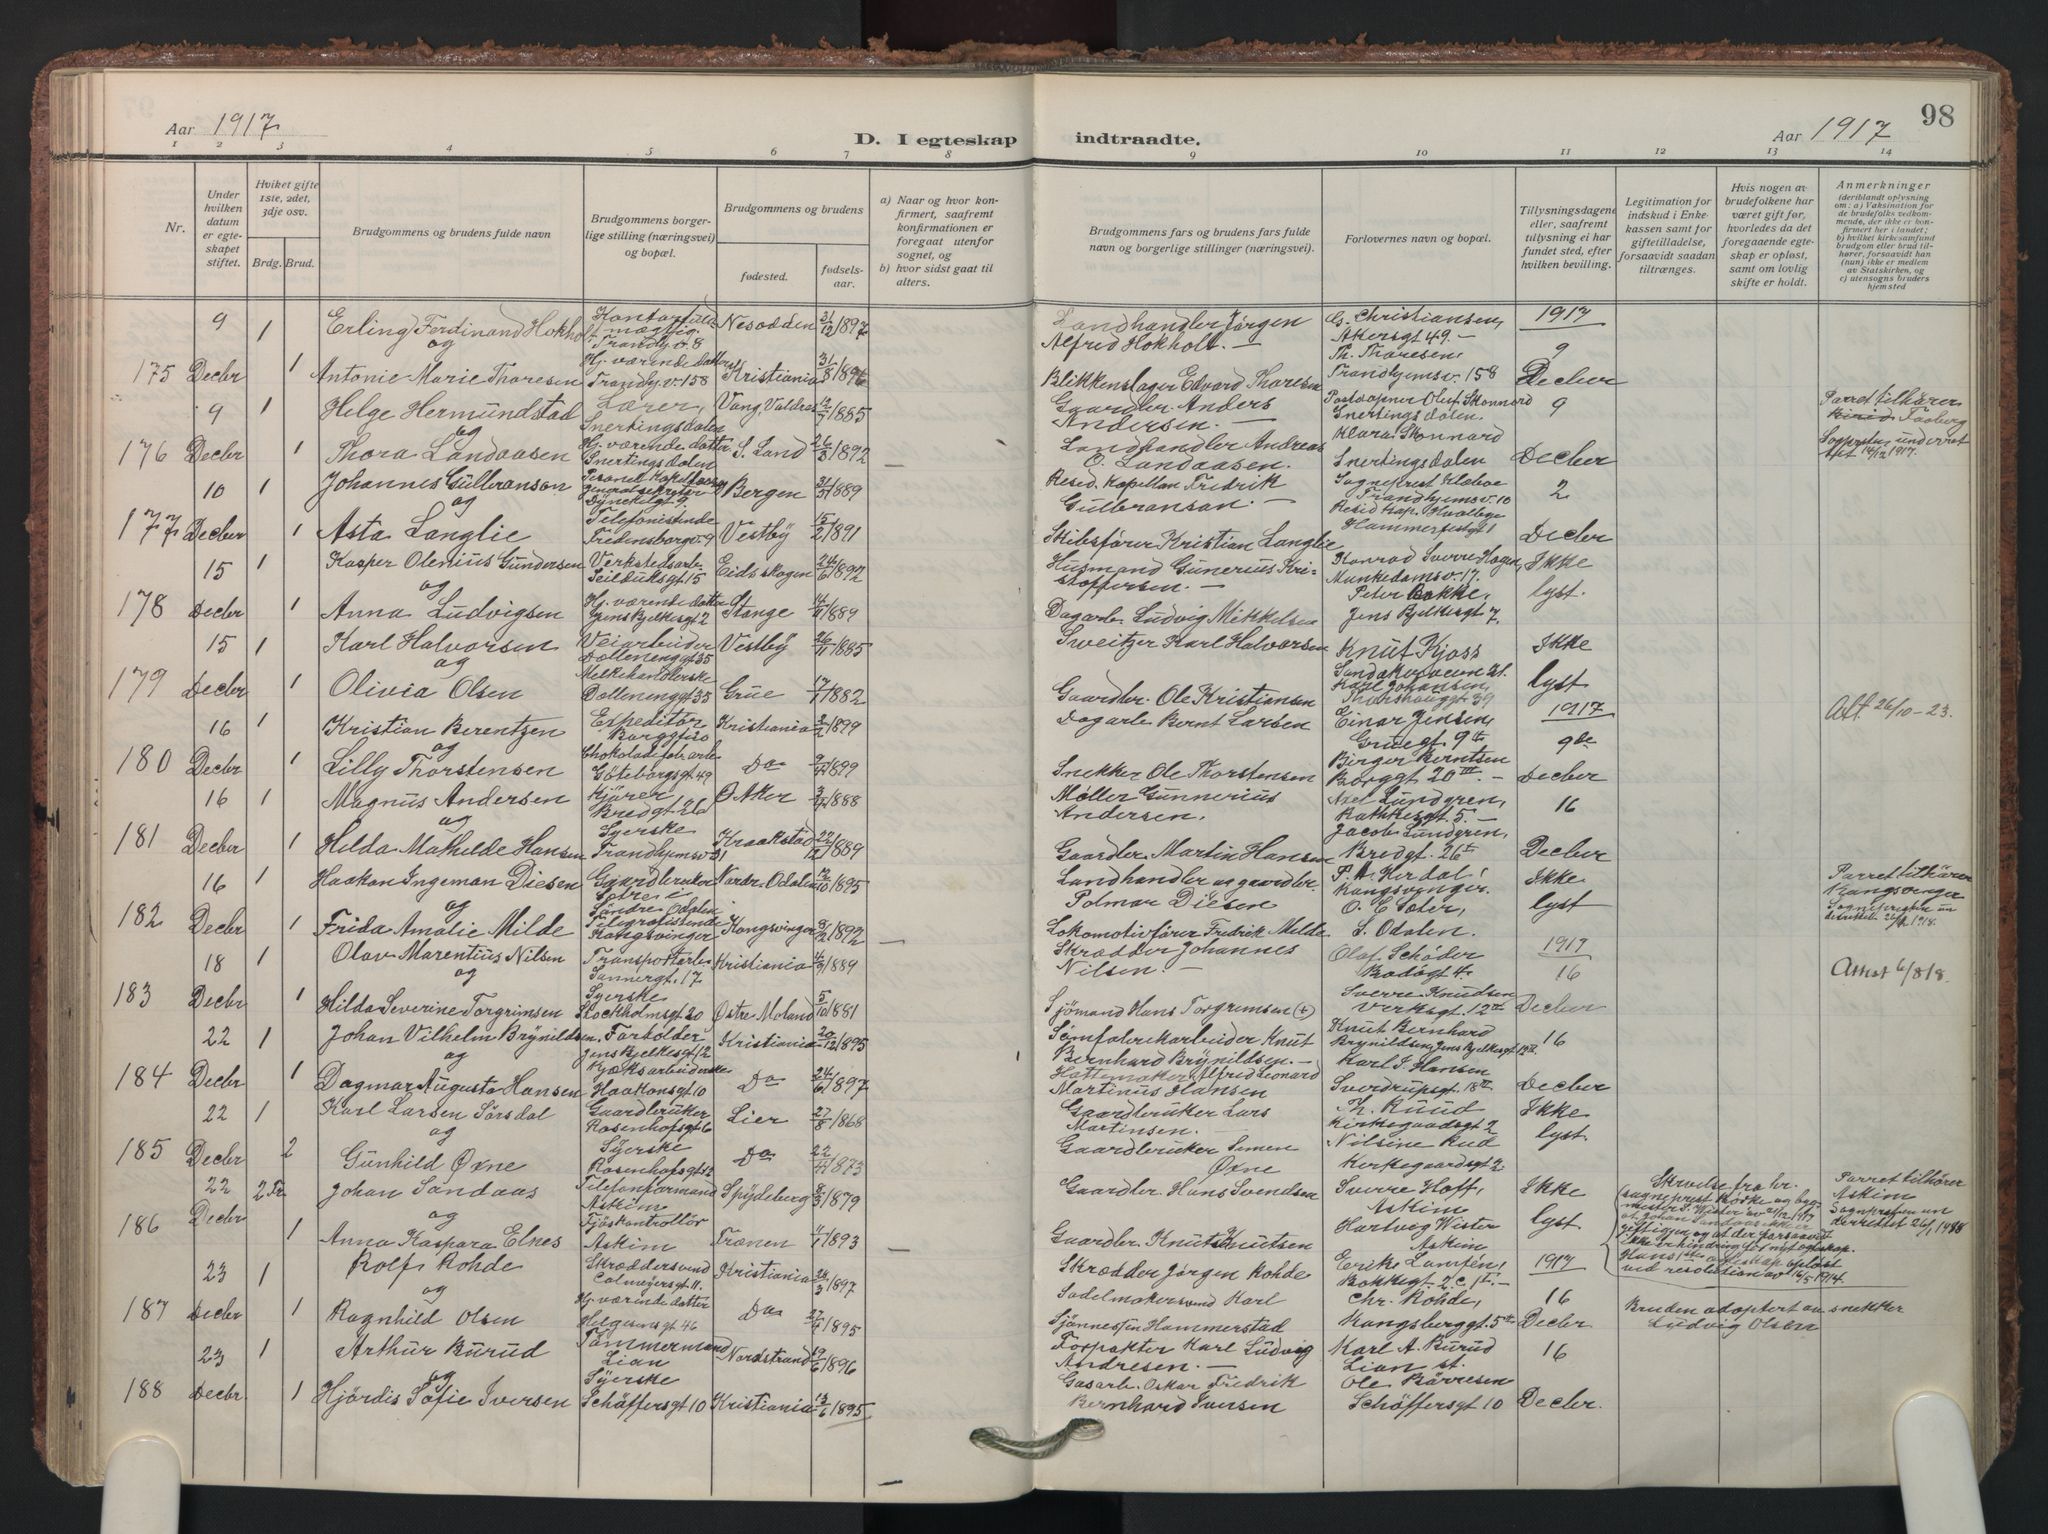 98
Aar 1917
D. I egteskap indtraadte.
Aar 1917
1 2 3 4 5 6 7 8 9 10 11 12 13 14
Nr.
Under hvilken datum er egteskapet stiftet.
Hviket gifte 1ste, 2det, 3dje osv.
Brdg. Brud.
Brudgommens og brudens fulde navn
Brudgommens borgerlige stilling (næringsvei) og bopæl.
Brudgommens og brudens
fødested.
fødselsaar.
a) Naar og hvor konfirmert, saafremt konfirmationen er foregaat utenfor sognet, og
b) hvor sidst gaat til alters.
Brudgommens fars og brudens fars fulde navn og borgerlige stillinger (næringsvei).
Forlovernes navn og bopæl.
Tillysningsdagene eller, saafremt tillysning ei har fundet sted, efter hvilken bevilling.
Legitimation for indskud i Enkekassen samt for giftetilladelse, forsaavidt saadan tiltrænges.
Hvis nogen av brudefolkene har været gift før, hvorledes da det foregaaende egteskap er opløst, samt om lovlig skifte er holdt.
Anmerkninger (deriblandt oplysning om: a) Vaksination for de brudefolks vedkommende, der ikke er konfirmert her i landet; b) hvilket kirkesamfund brudgom eller brud tilhører, forsaavidt han (hun) ikke er medlem av Statskirken, og c) utensogns bruders hjemsted
9 1 Erling Ferdinand Hokholt Nesodden 31/12 1897 Landhandler Jørgen Alfred Hokholt. — G. Christiansen, Akersgt 49. — 1917
og
175 Decbr 1 Antonie Marie Thoresen Hj. værende datter Trondhj.v. 158 Kristiania 31/8 1896 Blikkenslager Edvard Thoresen Th. Thoresen, Trondhjemsv. 158 9 Decber
9 1 Helge Hermundstad Lærer, Snertingsdalen Vang, Valdres 12/7 1885 Gaardbr. Anders Andersen. — Postaapner Olaf Skonnord Snertingsdalen. 9 Parret tilhører
og
176 Decbr 1 Thora Landaasen Hj. værende datter Snertingsdalen S. Land 26/3 1892 Landhandler Andreas O. Landaasen. Klara Skonnord Snertingsdalen Decber
10 1 Johannes Gulbranson Bergen 31/3 1889 Resid. Kapellan Fredrik Gulbranson. — Sogneprest Klaboe Trondhjemsv. 10 2
og
177 Decber 1 Asta Langlie Telefonistinde Fredensborgv. 9 Vestby 15/2 1891 Skibsfører Kristian Langlie Hammerfestgt 1 Decber
15 1 Kasper Olenius Gundersen Verkstedsarb. Seilduksgt 15 Eidsskogen 24/6 1892 Husmand Gunerius Kristoffersen. — Konrad Sverre Hagen, Munkedamsv. 17. Ikke
og
178 Decbr 1 Anna Ludvigsen Hj. værende datter Jens Bjelkesgt 2 Stange 14/11 1889 Dagarb. Ludvig Mikkelsen Peter Bakke, Jens Bjelkesgt 7. lyst.
15 1 Karl Halvorsen Veiarbeider Dælenenggt 35 Vestby 26/11 1885 Sweitzer Karl Halvorsen Knut Kjoss Sandakerveien 21. Ikke
og
179 Decbr 1 Olivia Olsen Melkehandlerske Dælenenggt 35 Grue 17/1 1882 Gaardbr. Ole Kristiansen Karl Johansen, lyst
16 1 Kristian Berentzen Expeditør Borggt 20 Kristiania 2/2 1899 Dagarb. Bernt Larsen Einar Jensen, 1917 Att. 26/10-23.
og
180 Decbr 1 Lilly Thorstensen Chokoladefabr.arb. Göteborgsgt 49 Do 1899 Snekker Ole Thorstensen Birger Berntsen Borggt 20 III. — 9de Decber
16 1 Magnus Andersen Kjører Bredgt. 26 Ø Aker 1888 Møller Gunnerius Andersen. Axel Lundgren, Rathkesgt 5. — 16
og
181 Decber 1 Hilda Mathilde Hansen Syerske Trondhjemsv 31 Kraakstad 22/12 1889 Gaardbr. Martin Hansen Jacob Lundgren, Bredgt. 26 I Decber
16 1 Haakon Ingeman Diesen Gaardbruker Søndre Odalen Nordr. Odalen 12/10 1895 Landhandler og gaardbr. Polmar Diesen P. A. Herdal, Kongsvinger. Ikke Parret tilhører Kongsvinger
og
182 Decbr 1 Frida Amalie Milde Telegrafistinde Kongsvinger Kongsvinger 9/2 1892 Lokomotivfører Fredrik Milde O. E. Sæter, S. Odalen. lyst
18 1 Olav Marentius Nilsen Transportarb. Sannergt. 17 Kristiania 4/9 1889 Skrædder Johannes Nilsen. — Olaf Schøder Bodøgt 4. 1917 16 Attest 6/8 18.
og
183 Decbr 1 Hilda Severine Torgrimsen Syerske Stockholmsgt 20 Østre Moland 5/10 1881 Sjömand Hans Torgrimsen (+) Sverre Knudsen Verksgt. 12 Decber
22 1 Johan Vilhelm Brynildsen Forholder Jens Bjelkesgt 12 Kristiania 20/12 1895 Bernhard Brynildsen. — Knut Bernhard Brynildsen, Jens Bjelkesgt 12 16
og
184 Decbr 1 Dagmar Augusta Hansen Kjæksarbeiderske Haakonsgt 10 Do 24/6 1897 Hattemaker Alfred Leonard Martinus Hansen Karl I. Hansen Sverdrupsgt. 18 Decber
22 1 Karl Larsen Sørsdal Gaardbruker Rosenhofsgt 6 Lier 27/8 1868 Gaardbruker Lars Martinsen. — Th. Ruud Kirkegaardsgt 2 Ikke
og
185 Decbr 2 Gunhild Øxne Syerske Rosenhofsgt 12 Do 1873 Gaardbruker Simen Øxne Nilsine Rud Kirkegaardsgt 2. lyst
22 2 Fr. Johan Sandaas Telefonformand Askim Spydeberg 8/3 1879 Gaardbr. Hans Svendsen Sverre Hoff, Askim Ikke Parret tilhører Askim
og
186 Decbr 1 Anna Kaspara Elnes Fjøskontrollör Askim Trænen 11/1 1893 Gaardbr. Knut Knutsen Hartvig Wister Askim lyst
23 1 Rolf Rohde Skræddersvend Colmeyersgt. 11. Kristiania 24/3 1897 Skrædder Jørgen Rohde 1917
og
187 Decbr 1 Ragnhild Olsen Hj. værende datter Helgesensgt 46 Do 1895 Sadelmakersvend Karl Hammerstad Chr. Rohde, Kongsberggt. 5 16 Decber Bruden adoptert av snekker Ludvig Olsen
23 1 Arthur Burud Tømmermand Lian Nordstrand 19/6 1896 Forpakter Karl Ludvig Andresen. — Karl A. Burud Lian st. 16
og
188 Decbr 1 Hjördis Sofie Iversen Syerske Schäffersgt 10 Kristiania 13/6 1895 Gasarb. Oskar Fredrik Bernhard Iversen Ole Børresen Schöffersgt 10 Decber.